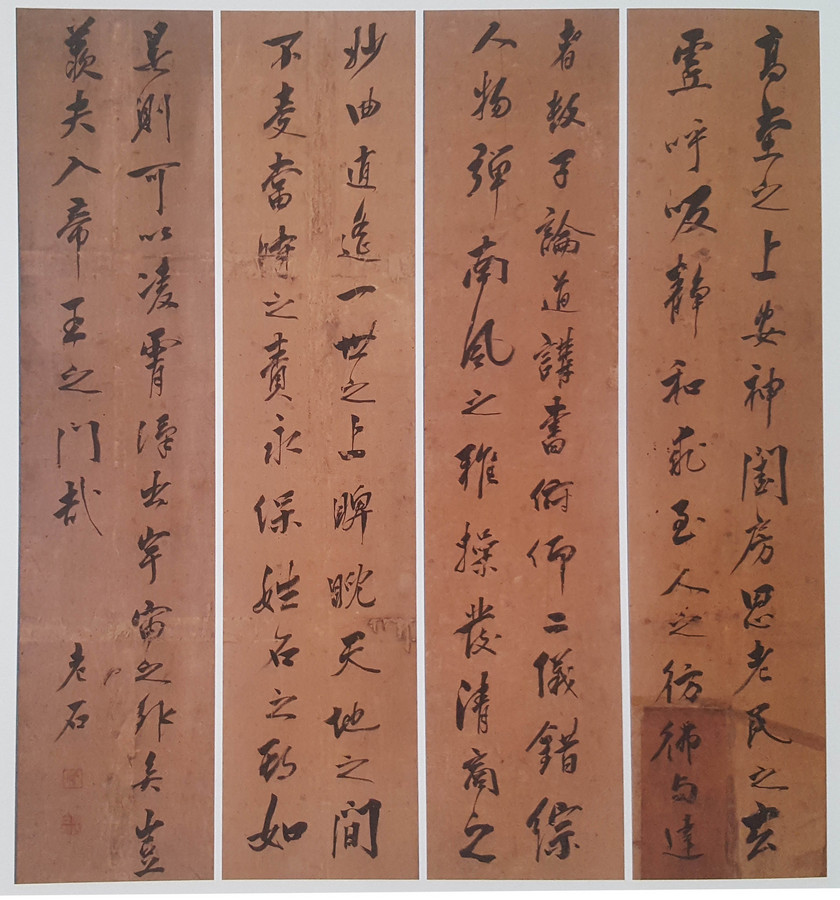 高堂之上安神閨房思老氏之玄
虛呼吸靜和求至人之彷彿与達
者數子論道講書俯仰二儀錯綜
人物彈南風之雅操發清商之
妙曲逍遙一世之上睥睨天地之間
不受當時之責永保姓名之期如
是則可以凌霄漢出宇宙之外矣豈
羨夫入帝王之門哉
老石